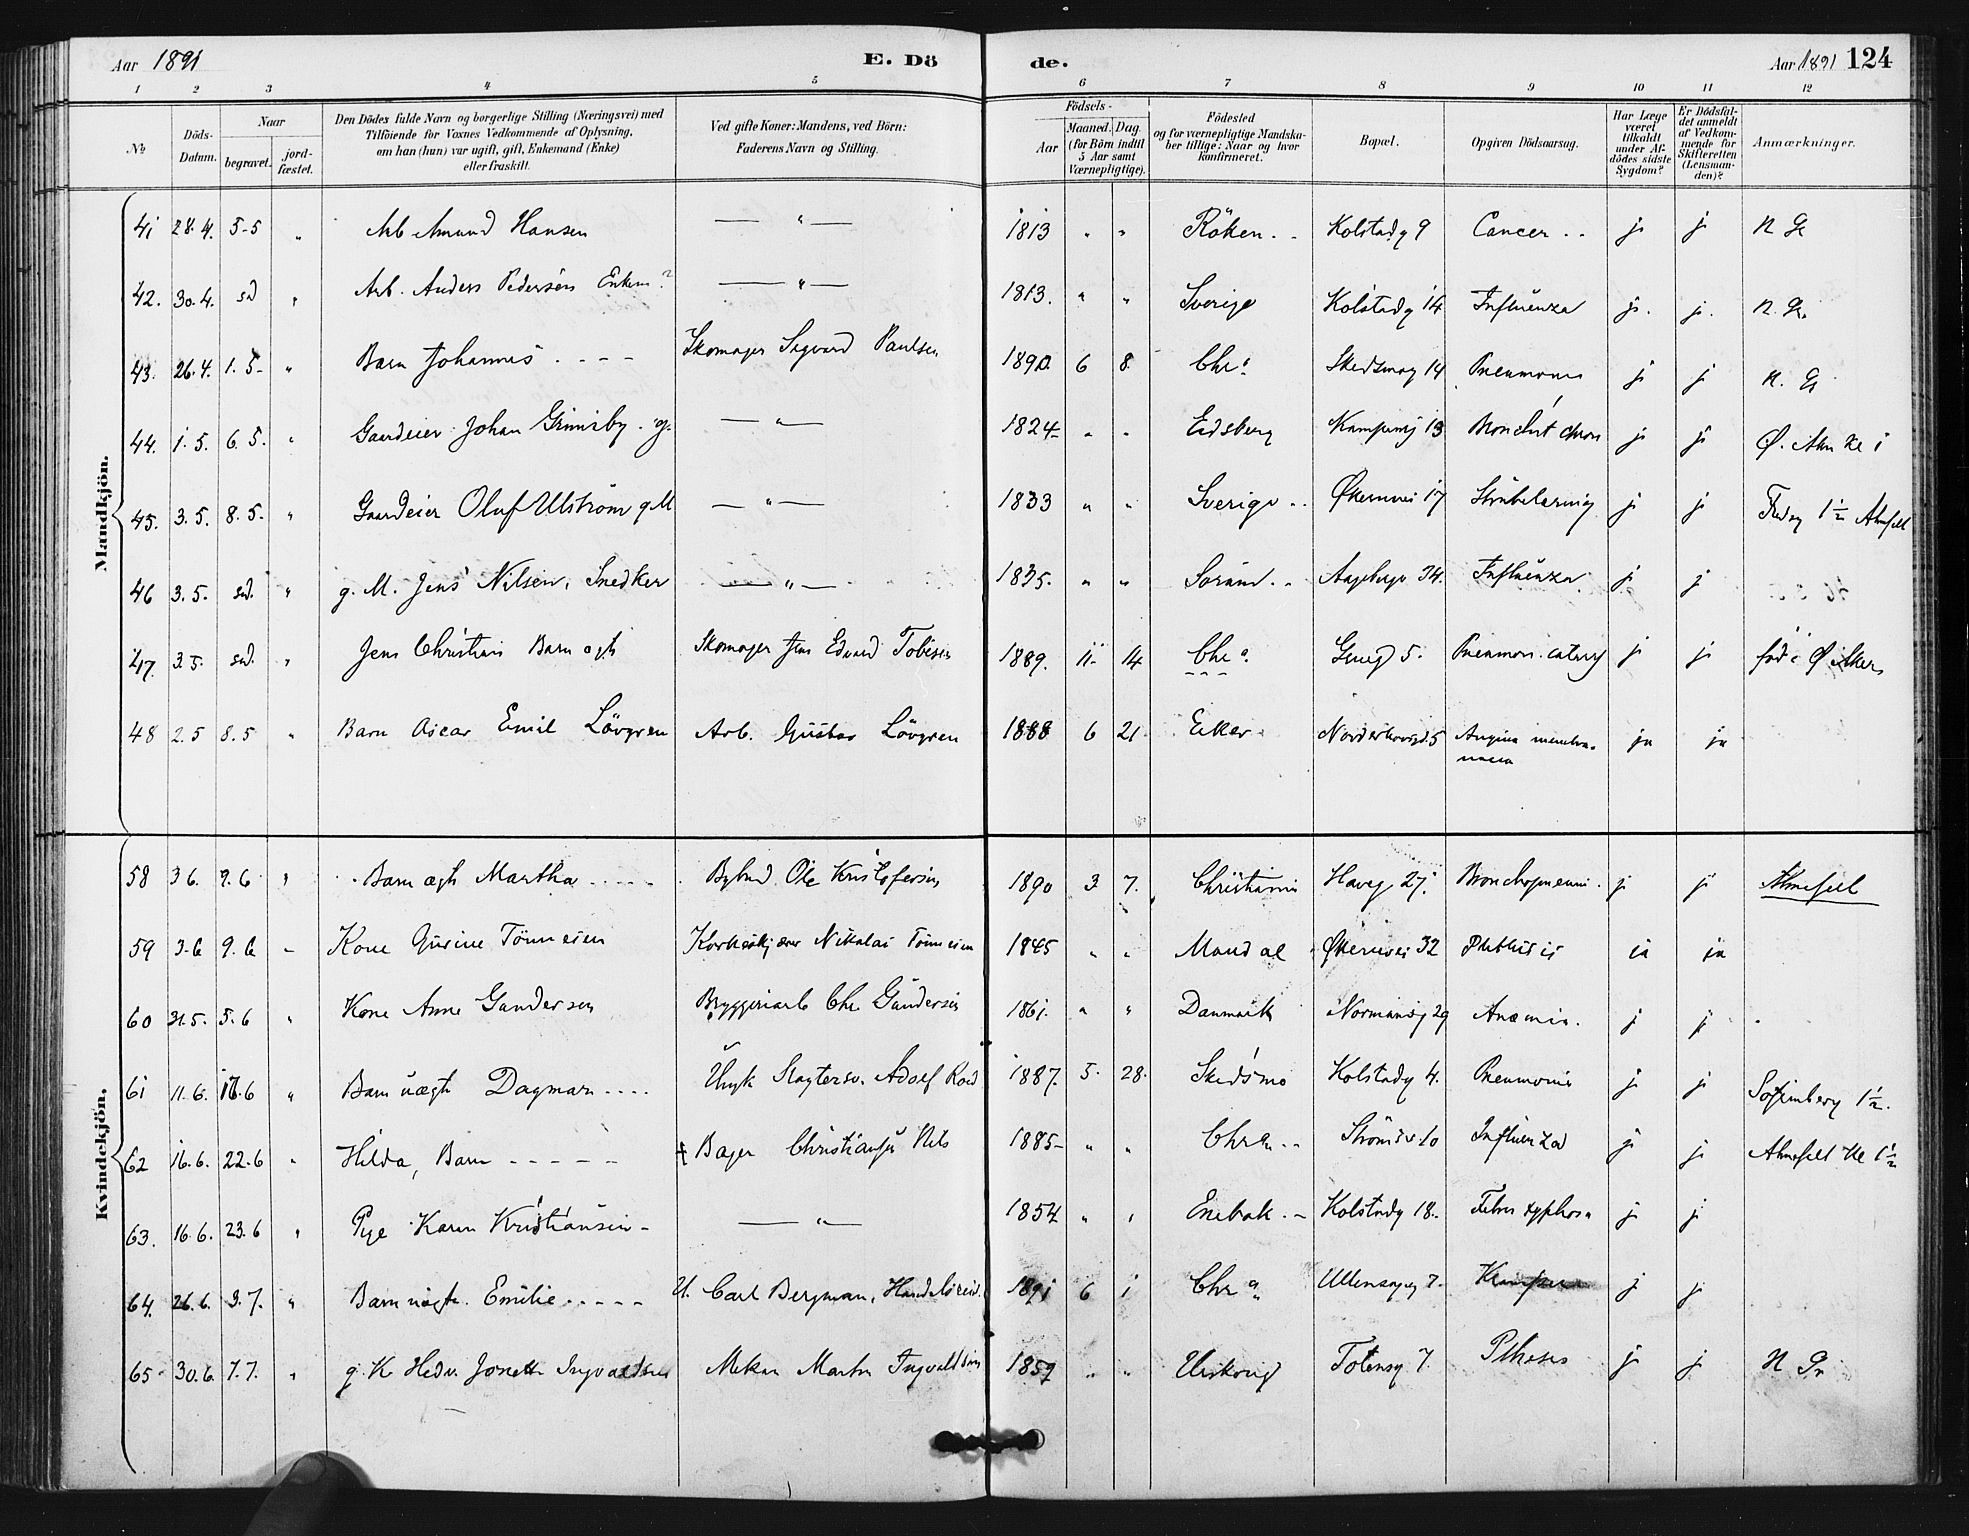 Aar 1891 E. Dö
de. Aar 1891 124
1 2 3 4 5 6 7 8 9 10 11 12
No Döds-Datum. Naar begravet. jord-fæstet. Den Dödes fulde Navn og borgerlige Stilling (Næringsvei) med Tilföiende for Voxnes Vedkommende af Oplysning, om han (hun) var ugift, gift, Enkemand (Enke) eller fraskilt. Ved gifte Koner: Mandens, ved Börn: Faderens Navn og Stilling. Födsels- Aar Maaned. Dag (for Börn indtil 5 Aar samt Værnepligtige). Födested og for værnepligtige Mandska-ber tillige: Naar og hvor konfirmeret. Bopæl. Opgiven Dödsaarsag. Har Læge været tilkaldt under Af-dödes sidste Sygdom? Er Dödsfal-det anmeldt af Vedkom-mende for Skifteretten (Lensman-den)? Anmærkninger.
Mandkjön.
41 28.4. 5-5 " Arb Amund Hansen — " — 1813 " " Röken Kolstadg 9 Cancer j j N G
42. 30.4. sd " Arb. Anders Pedersen Enkem. — " — 1813. " " Sverige Kolstadg 14 Influenza j. j. N. G.
43. 26.4. 1.5- " Barn Johannes Skomager Sigvard Paulsen 1890. 6 8 Chra Skedsmog 14 Pneumoni j j N. G
44. 1.5. 6.5. " Gaardeier Johan Grimsby g. — " — 1824 " " Eidsberg Kampensg 13 j j
45. 3.5. 8.5. " Gaardeier Oluf Ulström g M — " — 1833 " " Sverige Økernvei 17 Strubelaring j j 1½
46 3.5. sd. " g. M. Jens Nilsen, Snedker — " — 1835. " " Sörum Aagebergv 34. Influenza j j
47. 3.5. sd. " Jens Christian Barn ægt Skomager Jens Edvard Tobiesen 1889. 11 14 Chra 5. Pneumon. j j föd i Ø Aker
48 2.5 8.5 " Barn Oscar Emil Lövgren Arb. Gustav Lövgren 1888 6 21 Eker Norderhovgd. 5 Angina membra-nacea ja ja
Kvindekjön.
58 3 6. 9.6 " Barn ægt Martha Bybud Ole Kristofersen 1890 3 7. Christiania Haveg 27. Bronchopneumi. j j
59 3-6 9.6 " Kone Gurine Tönnesen Korkeskjærer Nikolai Tönnesen 1845 " " Mandal Økernvei 32 Phthisis ja ja
60 31.5. 5.6 " Kone Anne Gundersen Bryggeriarb Chr. Gundersen 1861. " " Danmark Normansg 29 Anæmia. j j
61 11.6. 17.6 " Barn uægt Dagmar Ungk Slagtersv. Adolf 1887. 5. 28. Skedsmo Kolstadg 4. Pneumoni j j Sofienberg 1½.
62 16.6. 22.6 " Hilda, Barn Bager Christiansen Nils 1885 " " Chra Strömsv 10 Influenza j j
63. 16.6. 23.6 " Pige Karen Kristiansen — " — 1854 " " Enebak Kolstadg 18. Febris typhosa j j
64. 26.6. 3.7. " Barn uægt. Emilie U. Carl Bergman, 1891 6 1 Chra Ullensagerg 7. j j
65 30.6. 7.7. " g. K Hedv. Jonette Ingvaldsen Mekan Martin Ingvaldsen 1859 " " Urskoug Totensg 7. Pthisis j j N Gr